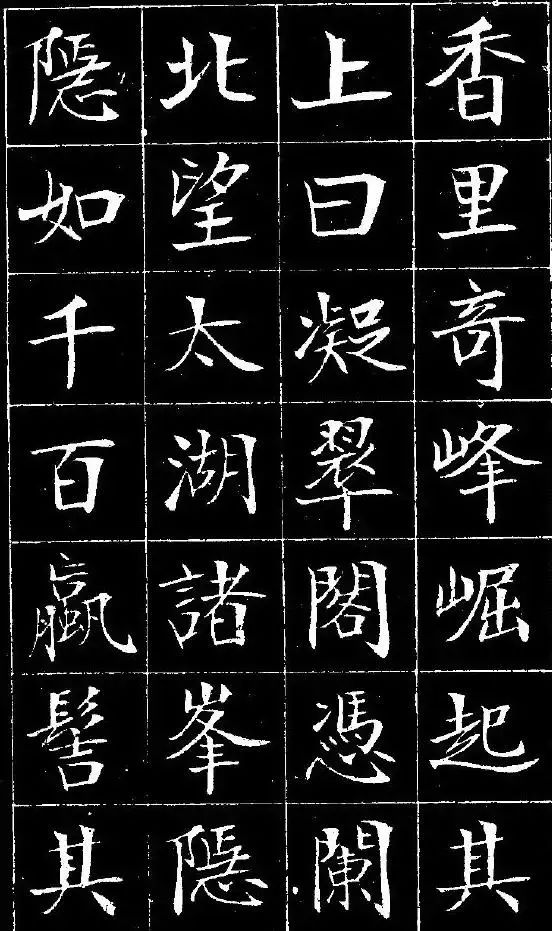 香里奇峰崛起其
上曰凝翠閣憑闌
北望太湖諸峯隱
隱如千百蠃髻其